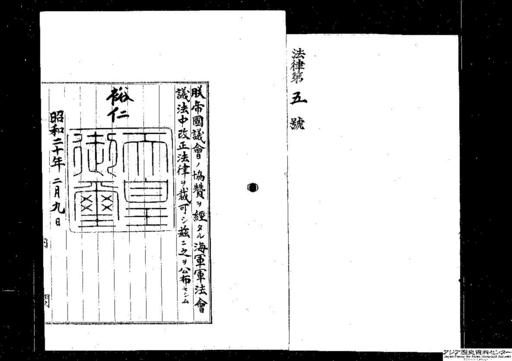 法律第五號
朕帝國議會ノ協贊ヲ經タル海軍軍法會
議法中改正法律ヲ裁可シ茲ニ之ヲ公布セシム
裕仁
天皇
御璽
昭和二十年二月九日
内閣
アジア歴史資料センター